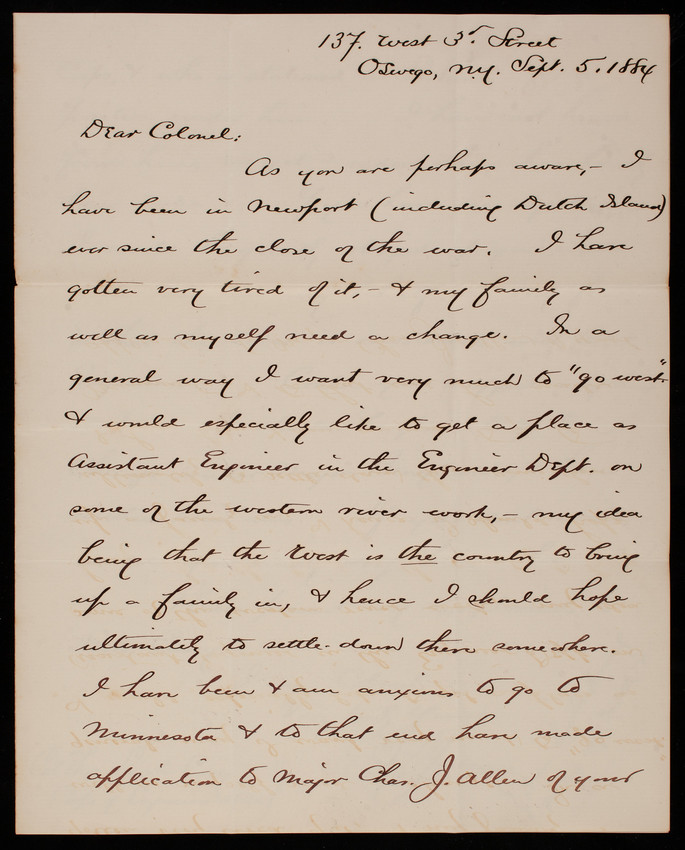 137. West 3d. Street
Oswego, N.Y. Sept. 5. 1884
Dear Colonel:
As you are perhaps aware,- I
have been in Newport (including Dutch Island)
ever since the close of the war. I have
gotten very tired of it,- & my family as
well as myself need a change. In a
general way I want very much to "go west"
& would especially like to get a place as
Assistant Engineer in the Engineer Dept. on
some of the western river work,- my idea
being that the West is the country to bring
up a family in, & hence I should hope
ultimately to settle-down there somewhere.
I have been & am anxious to go to
Minnesota & to that end have made
application to Major Chas. J. Allen of your